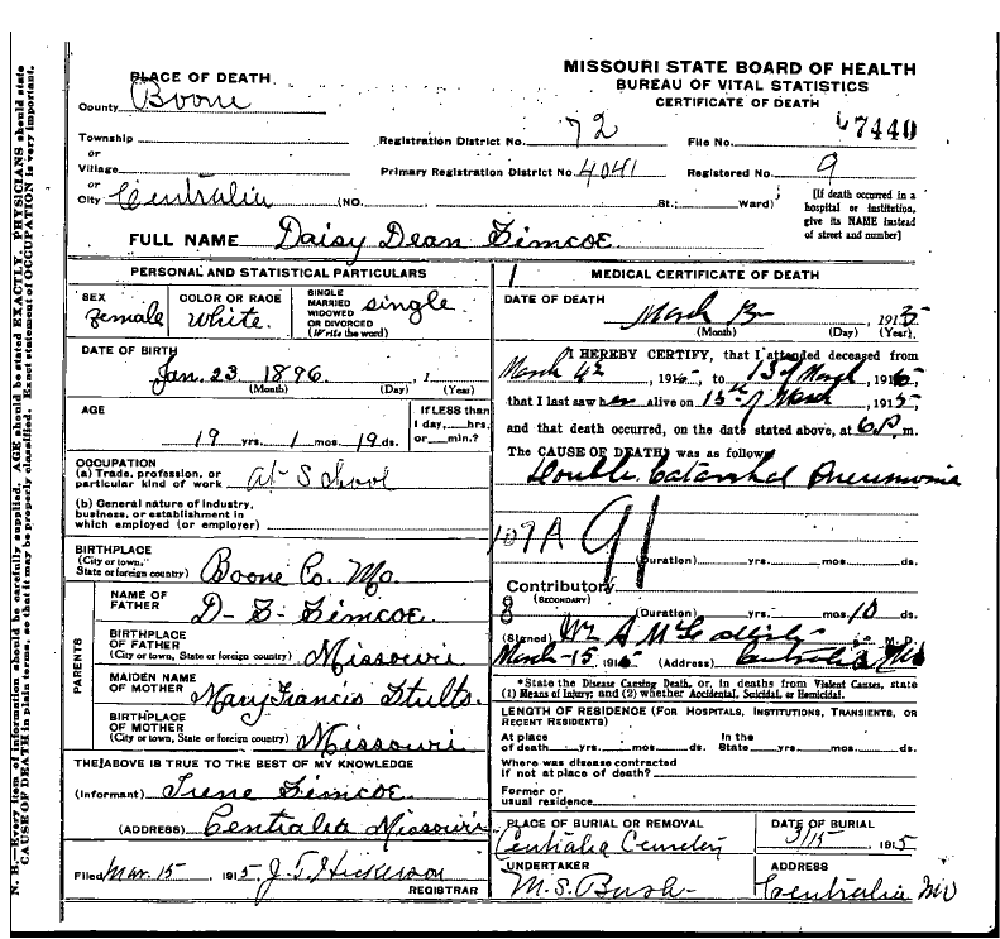 MISSOURI STATE BOARD OF HEALTH
BUREAU OF VITAL STATISTICS
CERTIFICATE OF DEATH
PLACE OF DEATH.
County Boone
Township
or
Village
or
City Centralia (NO. St.; Ward)
Registration District No. 72
Primary Registration District No. 4041
File No. 7440
Registered No. 9
[If death occurred in a
hospital or institution,
give its NAME instead
of street and number]
FULL NAME Daisy Dean Simcoe
PERSONAL AND STATISTICAL PARTICULARS
SEX
Female
COLOR OR RACE
White.
SINGLE
MARRIED
WIDOWED
OR DIVORCED
(Write the word)
single
DATE OF BIRTH
Jan. 23 1896. , 1
(Month) (Day) (Year)
AGE
19 yrs. 1 mos. 19 ds.
If LESS than
1 day, hrs.
or min.?
OCCUPATION
(a) Trade, profession, or
particular kind of work At School
(b) General nature of industry,
business, or establishment in
which employed (or employer)
BIRTHPLACE
(City or town,
State or foreign country) Boone Co. Mo.
PARENTS
NAME OF
FATHER D. S. Simcoe.
BIRTHPLACE
OF FATHER
(City or town, State or foreign country) Missouri
MAIDEN NAME
OF MOTHER Mary Francis Stults
BIRTHPLACE
OF MOTHER
(City or town, State or foreign country) Missouri
THE ABOVE IS TRUE TO THE BEST OF MY KNOWLEDGE
(Informant) Irene Simcoe
(ADDRESS) Centralia Missouri
Filed Mar. 15 , 1915 J. T. Hickerson
REGISTRAR
MEDICAL CERTIFICATE OF DEATH
DATE OF DEATH
March 13 1915
(Month) (Day) (Year)
I HEREBY CERTIFY, that I attended deceased from
March 4 , 1915, to 13 of March , 1915
that I last saw her alive on 13th of March , 1915,
and that death occurred, on the date stated above, at 6 P. m.
The CAUSE OF DEATH was as follows:
Double Catarrhal Pneumonia
109A 91
(Duration) yrs. mos. ds.
Contributory
(SECONDARY)
(Duration) yrs. mos. 10 ds.
(Signed) M. D.
March-15, 1915 (Address) Centralia Mo
*State the Disease Causing Death, or, in deaths from Violent Causes, state
(1) Means of Injury; and (2) whether Accidental, Suicidal, or Homicidal.
LENGTH OF RESIDENCE (FOR HOSPITALS, INSTITUTIONS, TRANSIENTS, OR
RECENT RESIDENTS)
At place
of death yrs. mos. ds.
In the
State yrs. mos. ds.
Where was disease contracted
if not at place of death?
Former or
usual residence
PLACE OF BURIAL OR REMOVAL
Centralia Cemetery
DATE OF BURIAL
3/15 , 1915
UNDERTAKER
M. S. Bush
ADDRESS
Centralia Mo
N. B.—Every item of information should be carefully supplied. AGE should be stated EXACTLY. PHYSICIANS should state
CAUSE OF DEATH in plain terms, so that it may be properly classified. Exact statement of OCCUPATION is very important.